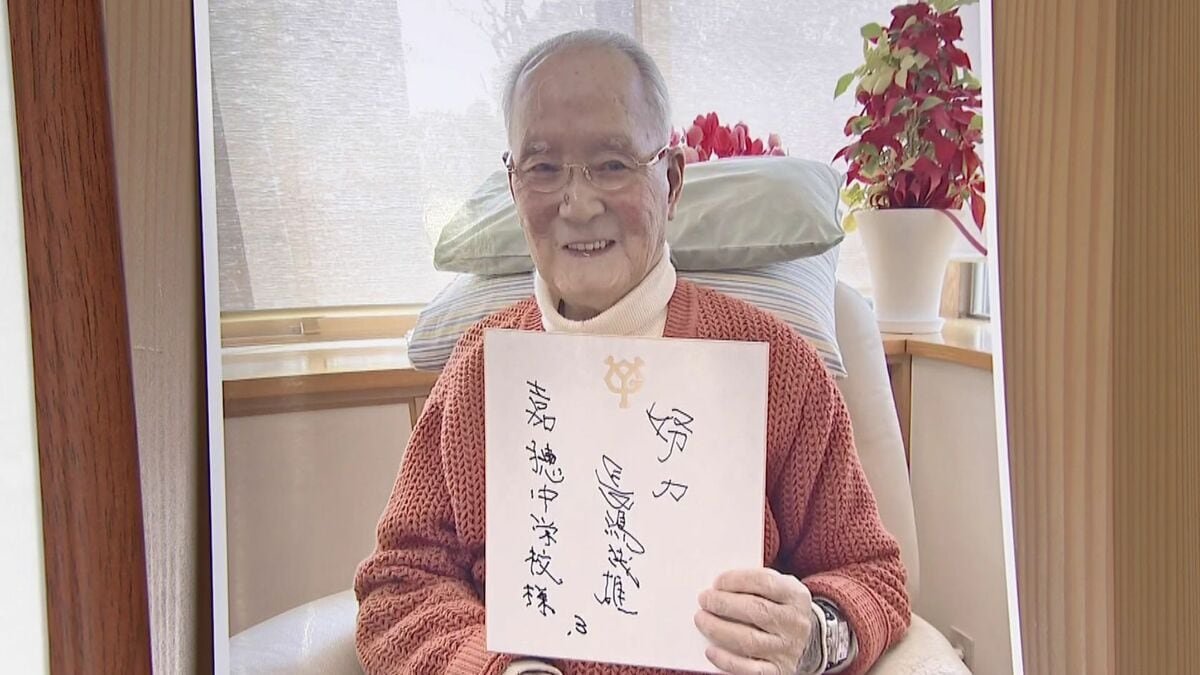 YG
努力
長嶋茂雄
3
嘉穂中学校様